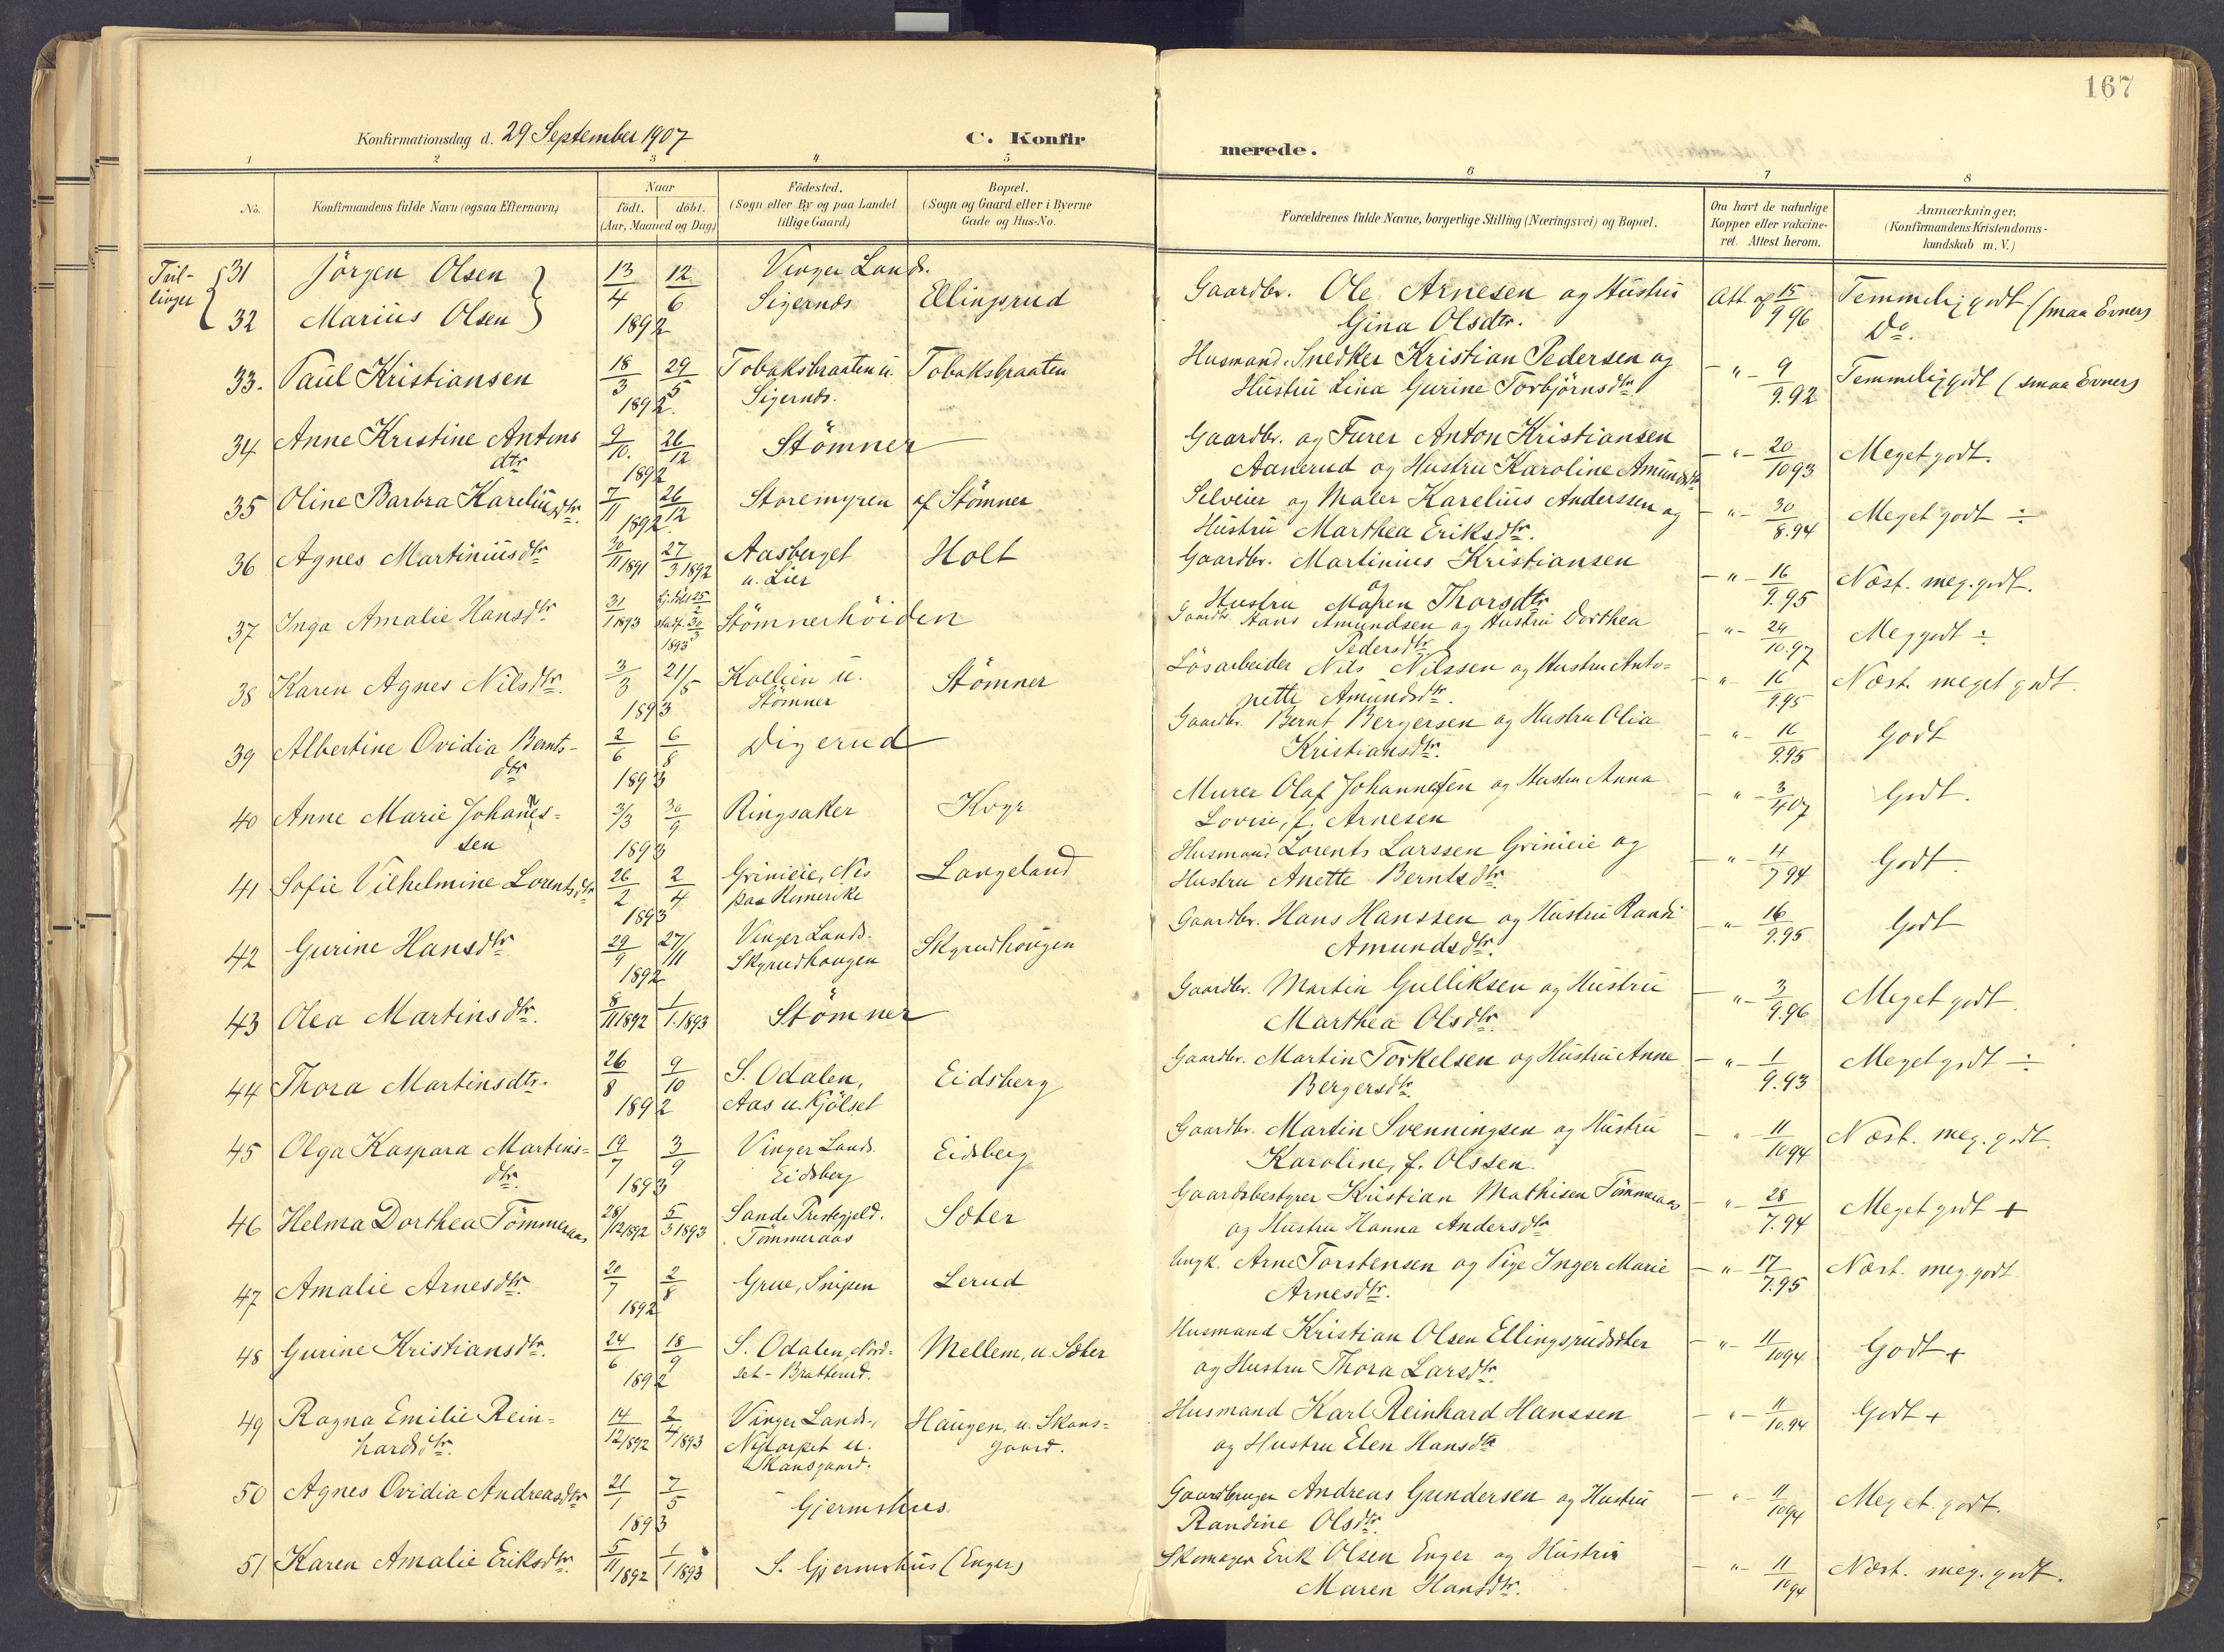 167
Konfirmationsdag d. 29 September 1907
C. Konfirmerede.
1 2 3 4 5 6 7 8
No.
Konfirmandens fulde Navn (ogsaa Efternavn)
Naar
födt. döbt.
(Aar, Maaned og Dag)
Födested.
(Sogn eller By og paa Landet
tillige Gaard)
Bopæl.
(Sogn og Gaard eller i Byerne
Gade og Hus-No.
Forældrenes fulde Navne, borgerlige Stilling (Næringsvei) og Bopæl.
Om havt de naturlige
Kopper eller vakcine-
ret. Attest herom.
Anmærkninger,
(Konfirmandens Kristendoms-
kundskab m. V.)
Tvil-
linger
31 Jörgen Olsen 13/4 12/6 1892 Vinger Lands. Sigernæs Ellingsrud Gaardbr. Ole Arnesen og Hustru Gina Olsdtr. Att. af 15/9 96 Temmelig godt (smaa Evner)
32 Marius Olsen Do.
33. Paul Kristiansen 18/3 29/5 1892. Tobaksbraaten u. Sigernæs. Tobaksbraaten Husmand. Snedker Kristian Pedersen og Hustru Lina Gurine Torbjörnsdtr. - " - 9/9.92 Temmelig godt (smaa Evner)
34 Anne Kristine Antonsdtr 9/10. 26/12 1892 Stömner Gaardbr. og Furer Anton Kristiansen Aanerud og Hustru Karoline Amundsdtr - " - 20/10 93 Meget godt.
35 Oline Barbra Kareliusdtr. 7/11 26/12 1892 Storemyren af Stömner Selveier og Maler Karelius Anderssen og Hustru Marthea Eriksdtr. - " - 30/8.94 Meget godt ÷
36 Agnes Martiniusdtr 30/11 1891 27/3 1892 Aasberget u. Lier Holt Gaardbr. Martinius Kristiansen og Hustru Maren Thorsdtr - " - 16/9.95 Næst. meg. godt.
37 Inga Amalie Hansdtr 31/1 1893 Hj. döbt 25/2 stadf. 30/3 1893 Stömnerhöiden Gaardbr. Hans Amundsen og Hustru Dorthea Pedersdtr - " - 24/10.97 Meg godt ÷
38 Karen Agnes Nilsdtr. 3/3 21/5 1893 Kollien u. Stömner Stömner Lösarbeider Nils Nilssen og Hustru Antonette Amundsdtr. - " - 16/9.95 Næst. meget godt.
39 Albertine Ovidia Berntsdtr 2/6 6/8 1893 Digerud Gaardbr. Bernt Bergersen og Hustru Olia Kristiansdtr. - " - 16/9.95 Godt
40 Anne Marie Johannes=sen 3/3 30/9 1893 Ringsaker Kroge Murer Olaf Johannesen og Hustru Anna Lovise, f. Arnesen - " - 3/4 07 Godt.
41 Sofie Vilhelmine Lorentsdtr 26/2 2/4 1893 Grinieie, Nes paa Romerike Langeland Husmand Lorents Larssen Grinieie og Hustru Anette Berntsdtr. - " - 4/7 94 Godt
42 Gurine Hansdtr 29/9 27/11 1892 Vinger Lands. Skyrudhougen Skyrudhougen Gaardbr. Hans Hanssen og Hustru Randi Amundsdtr. - " - 16/9.95 Godt
43 Olea Martinsdtr. 8/11 1892 1/1.1893 Stömner Gaardbr. Martin Gulliksen og Hustru Marthea Olsdtr. - " - 3/9.96 Meget godt.
44 Thora Martinsdtr. 26/8 9/10 1892 S. Odalen, Aas u. Kjölset Eidsberg Gaardbr. Martin Torkelsen og Hustru Anne Bergersdtr. - " - 1/9.93 Meget godt ÷
45 Olga Kaspara Martins=dtr. 19/7 3/9 1893 Vinger Lands. Eidsberg Eidsberg Gaardbr. Martin Svenningsen og Hustru Karoline, f. Olssen. - " - 11/10 94 Næst. meg. godt.
46 Helma Dorthea Tömmeraas 28/12 1892 5/3 1893 Sande Prestegjeld. Tömmeraas Sæter Gaardsbestyrer Kristian Mathisen Tömmeraas og Hustru Hanna Andersdtr - " - 28/7.94 Meget godt +
47 Amalie Arnesdtr. 20/7 2/8 1892 Grue, Snipen Lerud Ungk. Arne Torstensen og Pige Inger Marie Arnesdtr. - " - 17/7.95 Næst. meg. godt
48 Gurine Kristiansdtr. 24/6 18/9 1892 S. Odalen, Nordset - Bratterud. Mellem, u. Sæter Husmand Kristian Olsen Ellingsrudsæter og Hustru Thora Larsdtr. - " - 11/10 94 Godt +
49 Ragna Emilie Rein=hardsdtr. 14/12 1892 2/4 1893 Vinger Lands., Nytorpet u. Skansgaard. Haugen, u. Skans=gaard. Husmand Karl Reinhard Hanssen og Hustru Elen Hansdtr - " - 11/10.94 Godt +
50 Agnes Ovidia Andreasdtr 21/1 7/5 1893 Gjermshus Gaardbruger Andreas Gundersen og Hustru Randine Olsdtr. - " - 11/10 94 Meget godt.
51 Karen Amalie Eriksdtr. 5/11 1892 1/1 1893 S. Gjermshus (Enger) Skomager Erik Olsen Enger og Hustru Maren Hansdtr. - " - 11/10 94 Næst. meg. godt.